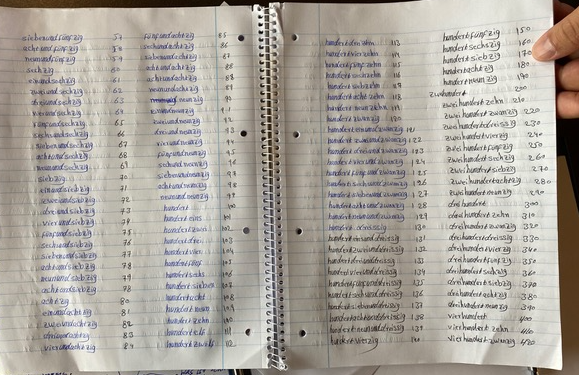 siebenundfünfzig 57
achtundfünfzig 58
neunundfünfzig 59
sechzig 60
einundsechzig 61
zweiundsechzig 62
dreiundsechzig 63
vierundsechzig 64
fünfundsechzig 65
sechsundsechzig 66
siebenundsechzig 67
achtundsechzig 68
neunundsechzig 69
siebzig 70
einundsiebzig 71
zweiundsiebzig 72
dreiundsiebzig 73
vierundsiebzig 74
fünfundsiebzig 75
sechsundsiebzig 76
siebenundsiebzig 77
achtundsiebzig 78
neunundsiebzig 79
achtzig 80
einundachtzig 81
zweiundachtzig 82
dreiundachtzig 83
vierundachtzig 84
fünfundachtzig 85
sechsundachtzig 86
siebenundachtzig 87
achtundachtzig 88
neunundachtzig 89
neunzig 90
einundneunzig 91
zweiundneunzig 92
dreiundneunzig 93
vierundneunzig 94
fünfundneunzig 95
sechsundneunzig 96
siebenundneunzig 97
achtundneunzig 98
neunundneunzig 99
hundert 100
hundert eins 101
hundert zwei 102
hundert drei 103
hundert vier 104
hundert fünf 105
hundert sechs 106
hundert sieben 107
hundert acht 108
hundert neun 109
hundert zehn 110
hundert elf 111
hundert zwölf 112
hundert dreizehn 113
hundert vierzehn 114
hundert fünfzehn 115
hundert sechzehn 116
hundert siebzehn 117
hundert achtzehn 118
hundert neunzehn 119
hundert zwanzig 120
hundert einundzwanzig 121
hundert zweiundzwanzig 122
hundert dreiundzwanzig 123
hundert vierundzwanzig 124
hundert fünfundzwanzig 125
hundert sechsundzwanzig 126
hundert siebenundzwanzig 127
hundert achtundzwanzig 128
hundert neunundzwanzig 129
hundert dreissig 130
hundert einunddreissig 131
hundert zweiunddreissig 132
hundert dreiunddreissig 133
hundert vierunddreissig 134
hundert fünfunddreissig 135
hundert sechsunddreissig 136
hundert siebenunddreissig 137
hundert achtunddreissig 138
hundert neununddreissig 139
hundert vierzig 140
hundert fünfzig 150
hundert sechszig 160
hundert siebzig 170
hundert achtzig 180
hundert neunzig 190
zweihundert 200
zwei hundert zehn 210
zwei hundert zwanzig 220
zwei hundert dreissig 230
zwei hundert vierzig 240
zwei hundert fünfzig 250
zwei hundert sechzig 260
zwei hundert siebzig 270
zwei hundert achtzig 280
zwei hundert neunzig 290
drei hundert 300
drei hundert zehn 310
drei hundert zwanzig 320
drei hundert dreissig 330
drei hundert vierzig 340
drei hundert fünfzig 350
drei hundert sechzig 360
drei hundert siebzig 370
drei hundert achtzig 380
drei hundert neunzig 390
vier hundert 400
vier hundert zehn 410
vier hundert zwanzig 420